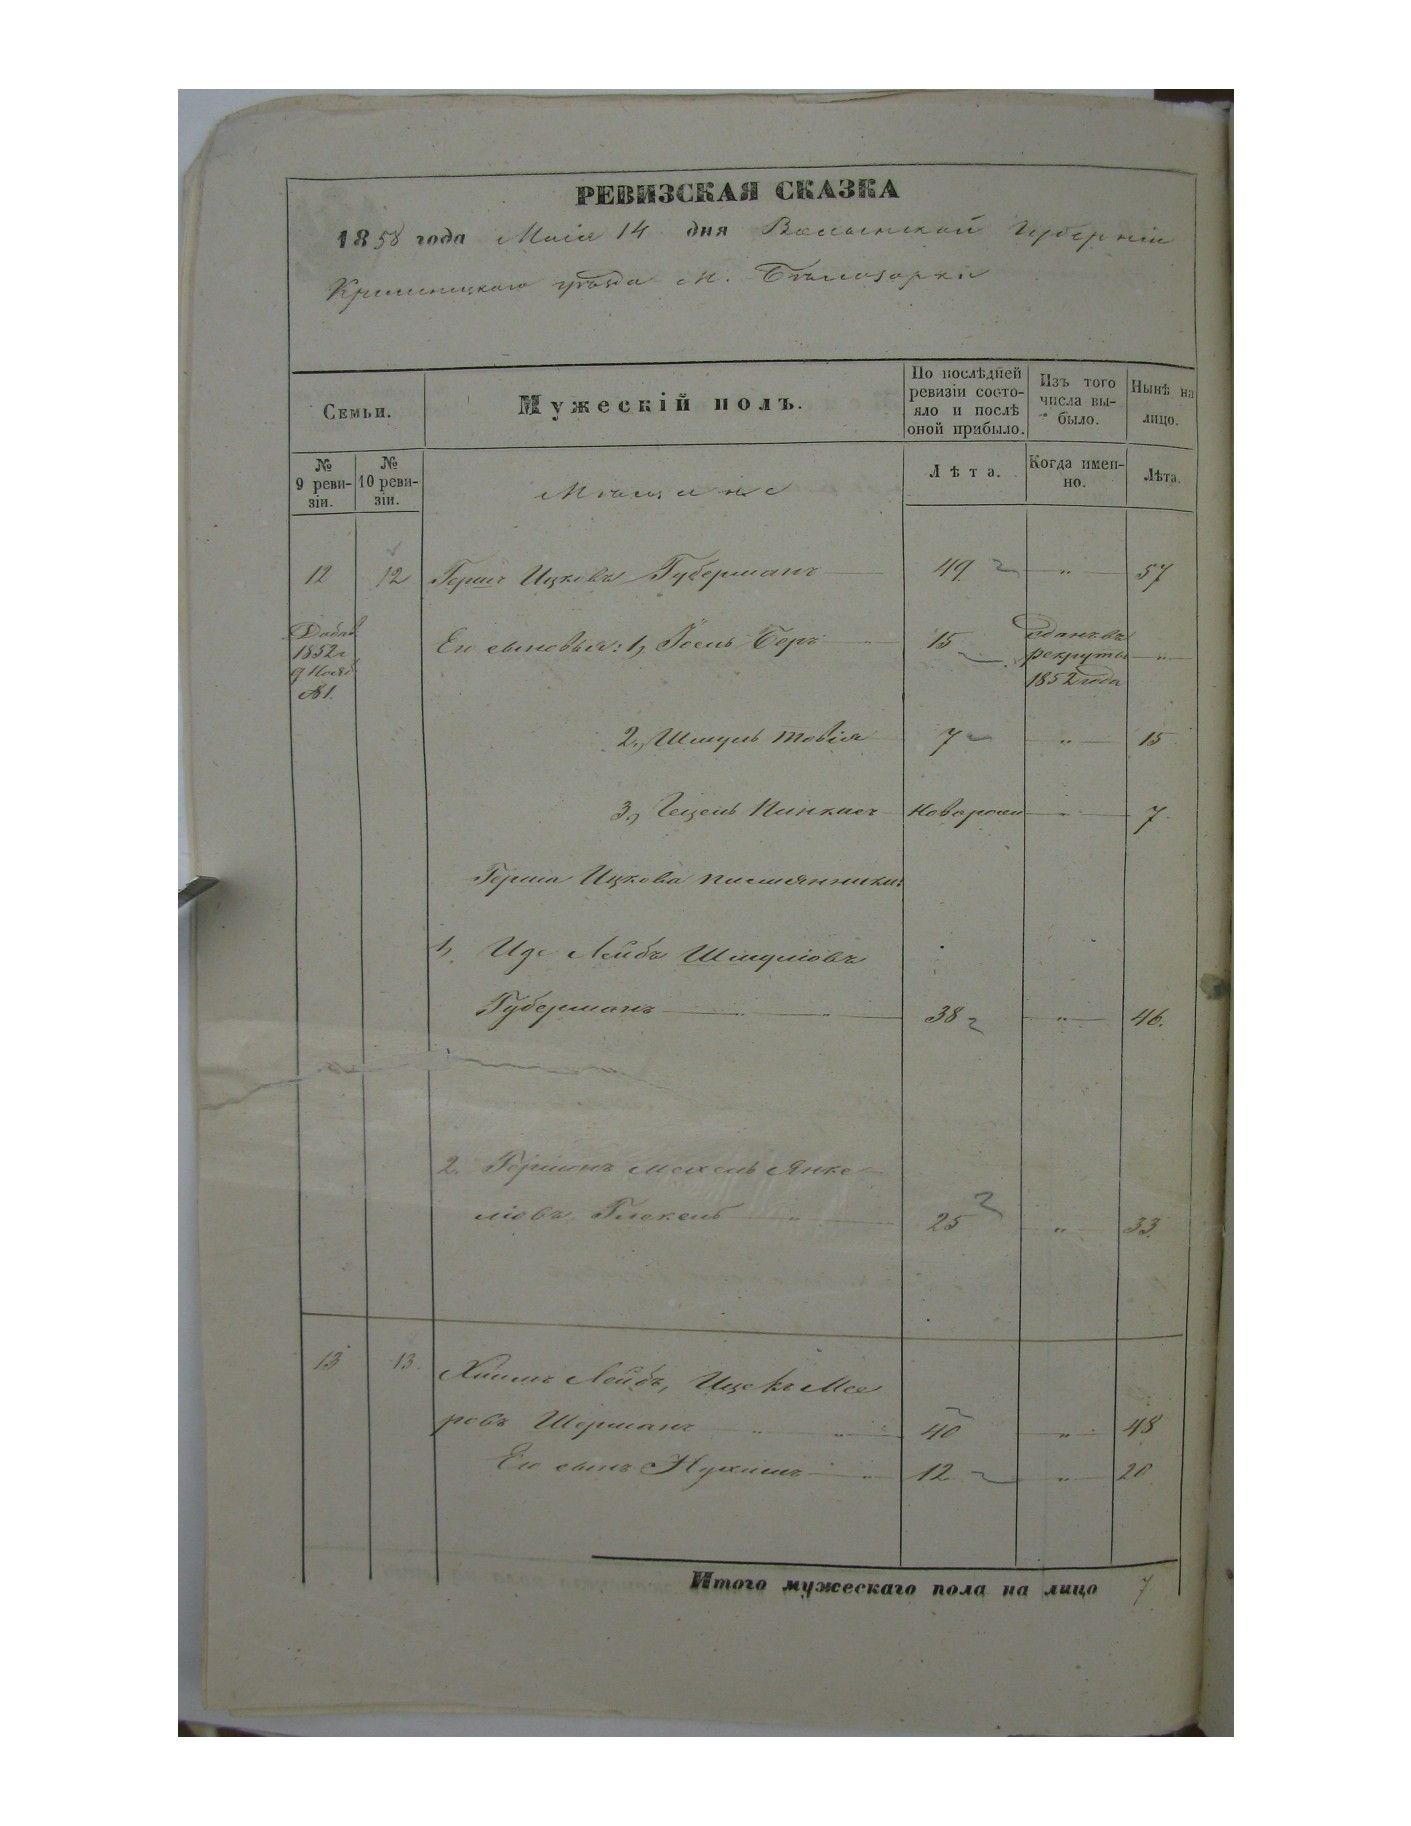 РЕВИЗСКАЯ СКАЗКА
1858 года Маія 14 дня Волынской Губерніи
Кременецкаго уѣзда м. Бѣлозорки
Семьи.
Мужескій полъ.
По послѣдней ревизіи состояло и послѣ оной прибыло.
Изъ того числа выбыло.
Нынѣ на лицо.
№ 9 ревизіи.
№ 10 ревизіи.
Мѣщане
Лѣта.
Когда именно.
Лѣта.
12 12 Гершъ Ицковъ Губерманъ 49 " 57
Добав. 1852 г. 9 Нояб. №1.
Его сыновья: 1, Іосель Беръ 15 сданъ въ рекруты 1852 года "
2, Шмуль Товія 7 " 15
3, Пинкасъ Новорожд " 7
Герша Ицкова племянники
1, Лейбъ Шмуліовъ
Губерманъ 38 " 46.
2. Мехель Янке-
ліовъ 25 " 33.
13 13. Хаимъ Лейбъ, Ицекъ Мее
ровъ Шерманъ " " 40 " 48
Его сынъ Нухимъ " 12 " 20
Итого мужескаго пола на лицо 7